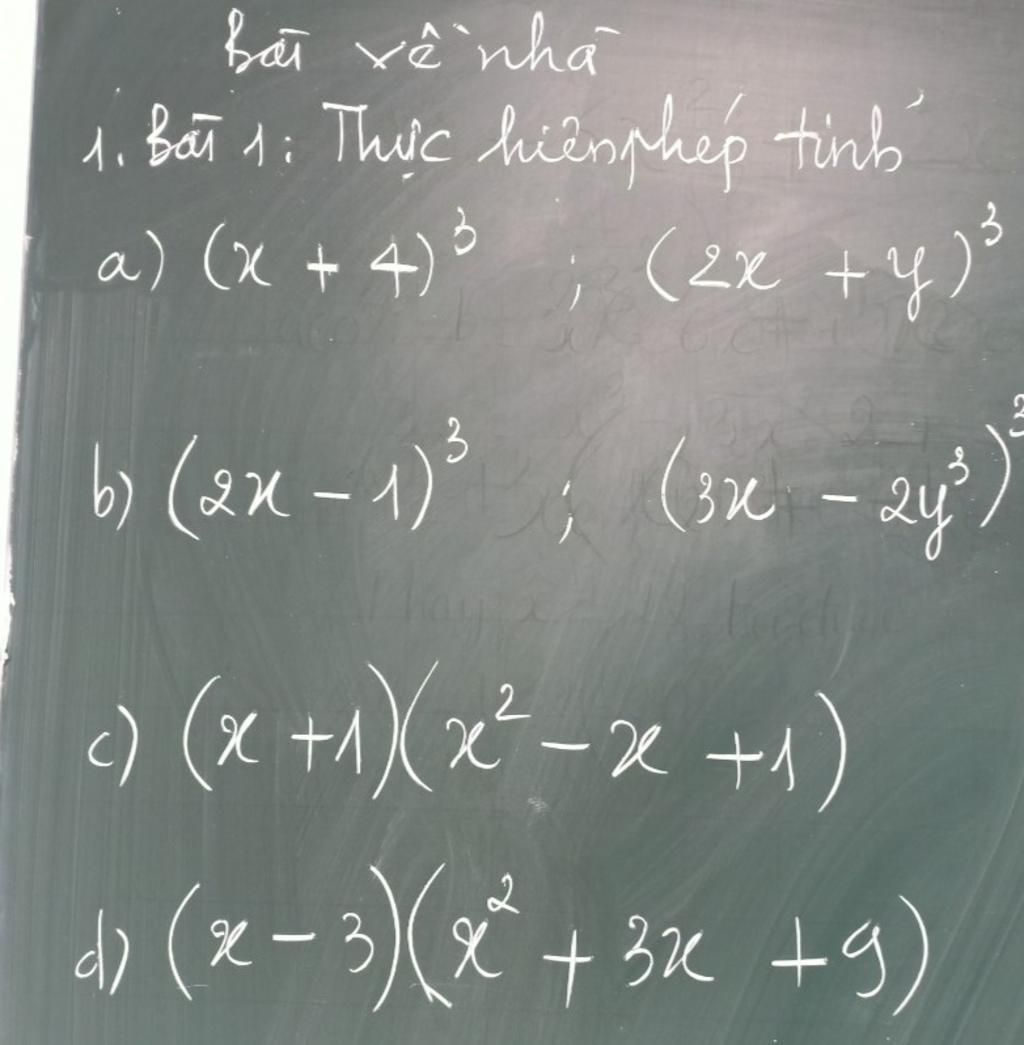 Bài về nhà
1. Bài 1: Thực hiện phép tính
a) (x + 4)³ ; (2x + y)³
b) (2x - 1)³ ; (3x - 2y³)³
c) (x + 1)(x² - x + 1)
d) (x - 3)(x² + 3x + 9)